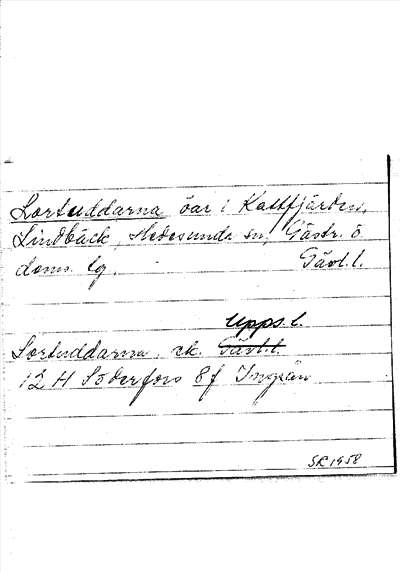 Lortuddarna öar i Kattfjärden,
Lindbäck, Hedesunda sn, Gästr. ö.
doms. lg. Gävl.l.
Upps.l.
Lortuddarna, ek. Gävl.l.
12 H Söderfors 8 f Ingsån
SR 1958